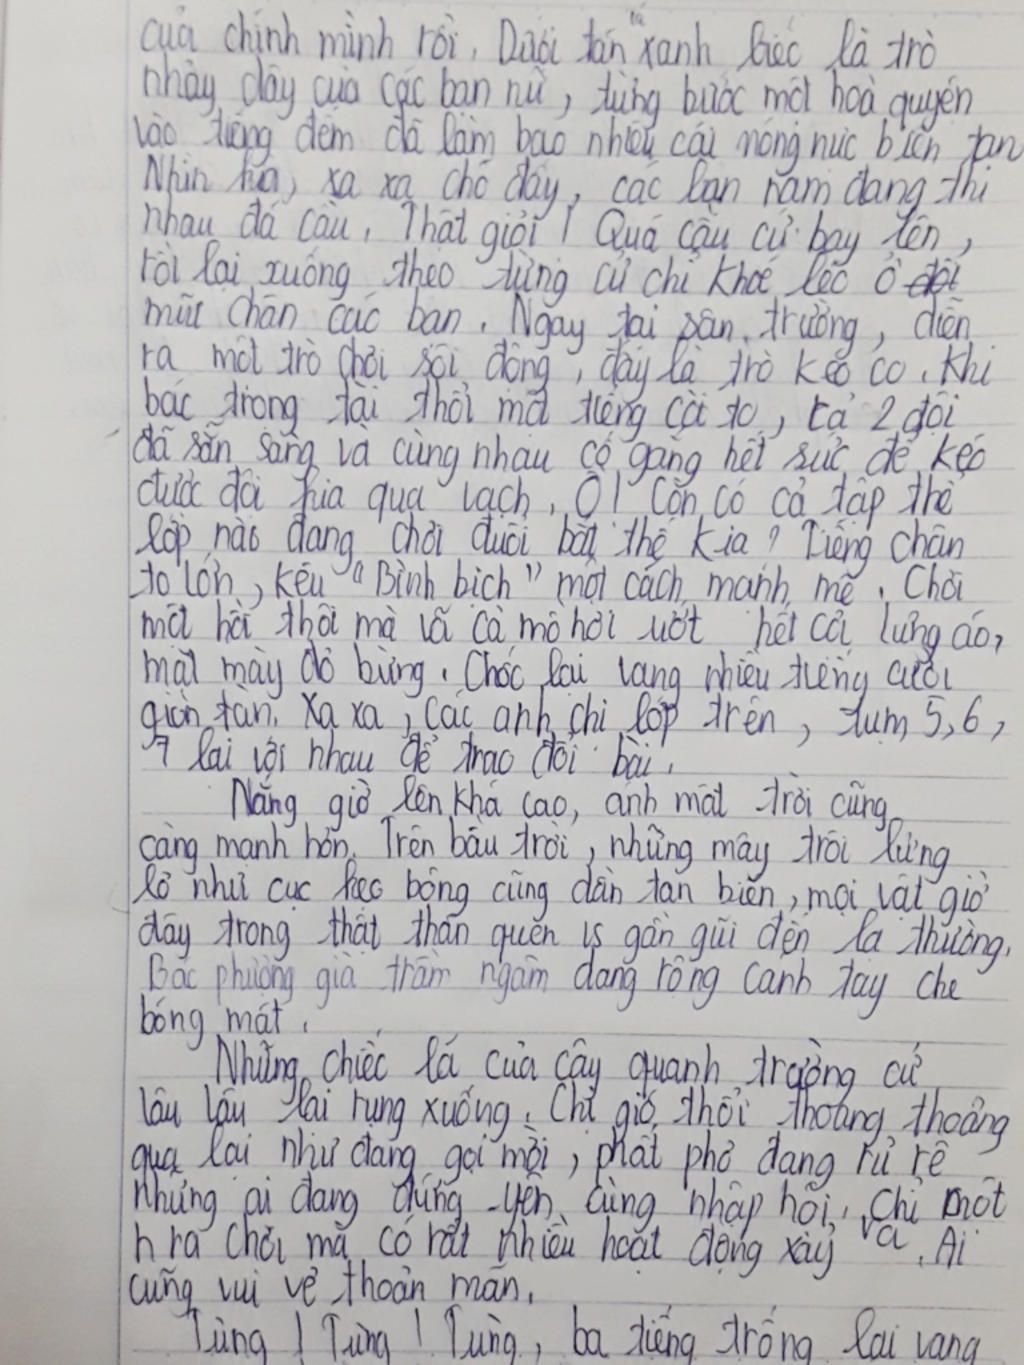 của chính mình rồi. Dưới tán lá xanh biếc là trò
nhảy dây của các bạn nữ, từng bước một hoà quyện
vào tiếng đếm đã làm bao nhiêu cái nóng nực biến tan
Nhìn kìa, xa xa chỗ đấy, các bạn nam đang thi
nhau đá cầu. Thật giỏi! Quả cầu cứ bay lên,
rồi lại xuống theo từng cử chỉ khoé léo ở đôi
mũi chân các bạn. Ngay tại sân trường, diễn
ra một trò chơi sôi động, đây là trò kéo co. Khi
bác trọng tài thổi một tiếng còi to, cả 2 đội
đã sẵn sàng và cùng nhau cố gắng hết sức để kéo
được đội kia qua vạch. Ồ! Còn có cả tập thể
lớp nào đang chơi đuổi bắt thế kia? Tiếng chân
to lớn, kêu "Bình bịch" một cách mạnh mẽ. Chơi
một hồi thôi mà vã cả mồ hơi ướt hết cải lưng áo,
mặt mày đỏ bừng. Chốc lại vang nhiều tiếng cười
giòn tan. Xa xa, các anh chị lớp trên, tụm 5, 6,
7 lại với nhau để trao đổi bài.
Nắng giờ lên khá cao, ánh mặt trời cũng
càng mạnh hơn. Trên bầu trời, những mây trôi lửng
lơ như cục kẹo bông cũng dần tan biến, mọi vật giờ
đây trong thật thân quen vs gần gũi đến lạ thường.
Bác phượng già trầm ngâm dang rộng cánh tay che
bóng mát.
Những chiếc lá của cây quanh trường cứ
lâu lâu lại rụng xuống. Chị gió thổi thoang thoảng
qua lại như đang gọi mời, phất phơ đang rủ rê
những ai đang đứng yên cùng nhập hội. Chỉ một
h ra chơi mà có rất nhiều hoạt động xảy ra. Ai
cũng vui vẻ thoản mãn.
Tùng! Tùng! Tùng, ba tiếng trống lại vang